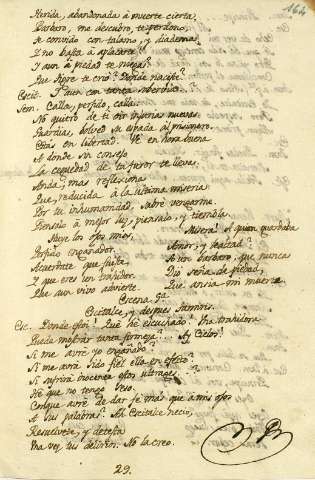 164
Herida, abandonada à muerte cierta,
Barbaro, me descubro, te perdono,
te convido con talamo, y diadema,
y no basta à aplacarte?
Y aun à piedad te niegas?
Que tigre te crió? Donde naciste?
Escit. Y aun con tanta sobervia...
Sem. Calla, perfido, calla.
No quiero de ti oir injurias nuevas.
Guardias, bolved su espada al prisionero.
Estás en libertad. Ve en hora buena
A donde sin consejo
La ceguedad de tu furor te lleve,
Anda; mas reflexiona
Que, reducida à la ultima miseria
Por tu inhumanidad, sabré vengarme.
Piensalo à mejor luz, piensalo, y tiembla.
Huye los ojos mios,
Perfido engañador,
Acuerdate que fuiste,
Y que eres un traidor.
Que aun vivo advierte.
Misera! à quien guardaba
Amor, y lealtad?
A un barbaro, que nunca
Dio seña de piedad,
Que ansia mi muerte.
Escena 9.ª
Escitalce, y despues Tamiris.
Esc. Donde estoi! Què he escuchado! Una traidora
Puede mostrar tanta firmeza?... Ay Cielos!
Si me avré yo engañado?
Si me avrá sido fiel ella en efecto?
Si sufrirá inocente estos ultrages
De que no tengo
Conque avre de dar fe mas que à mis ojos
A sus palabras? Ah Escitalce necio,
Resuelvete, y detesta
Una vez tus delirios. No la creo.
29.